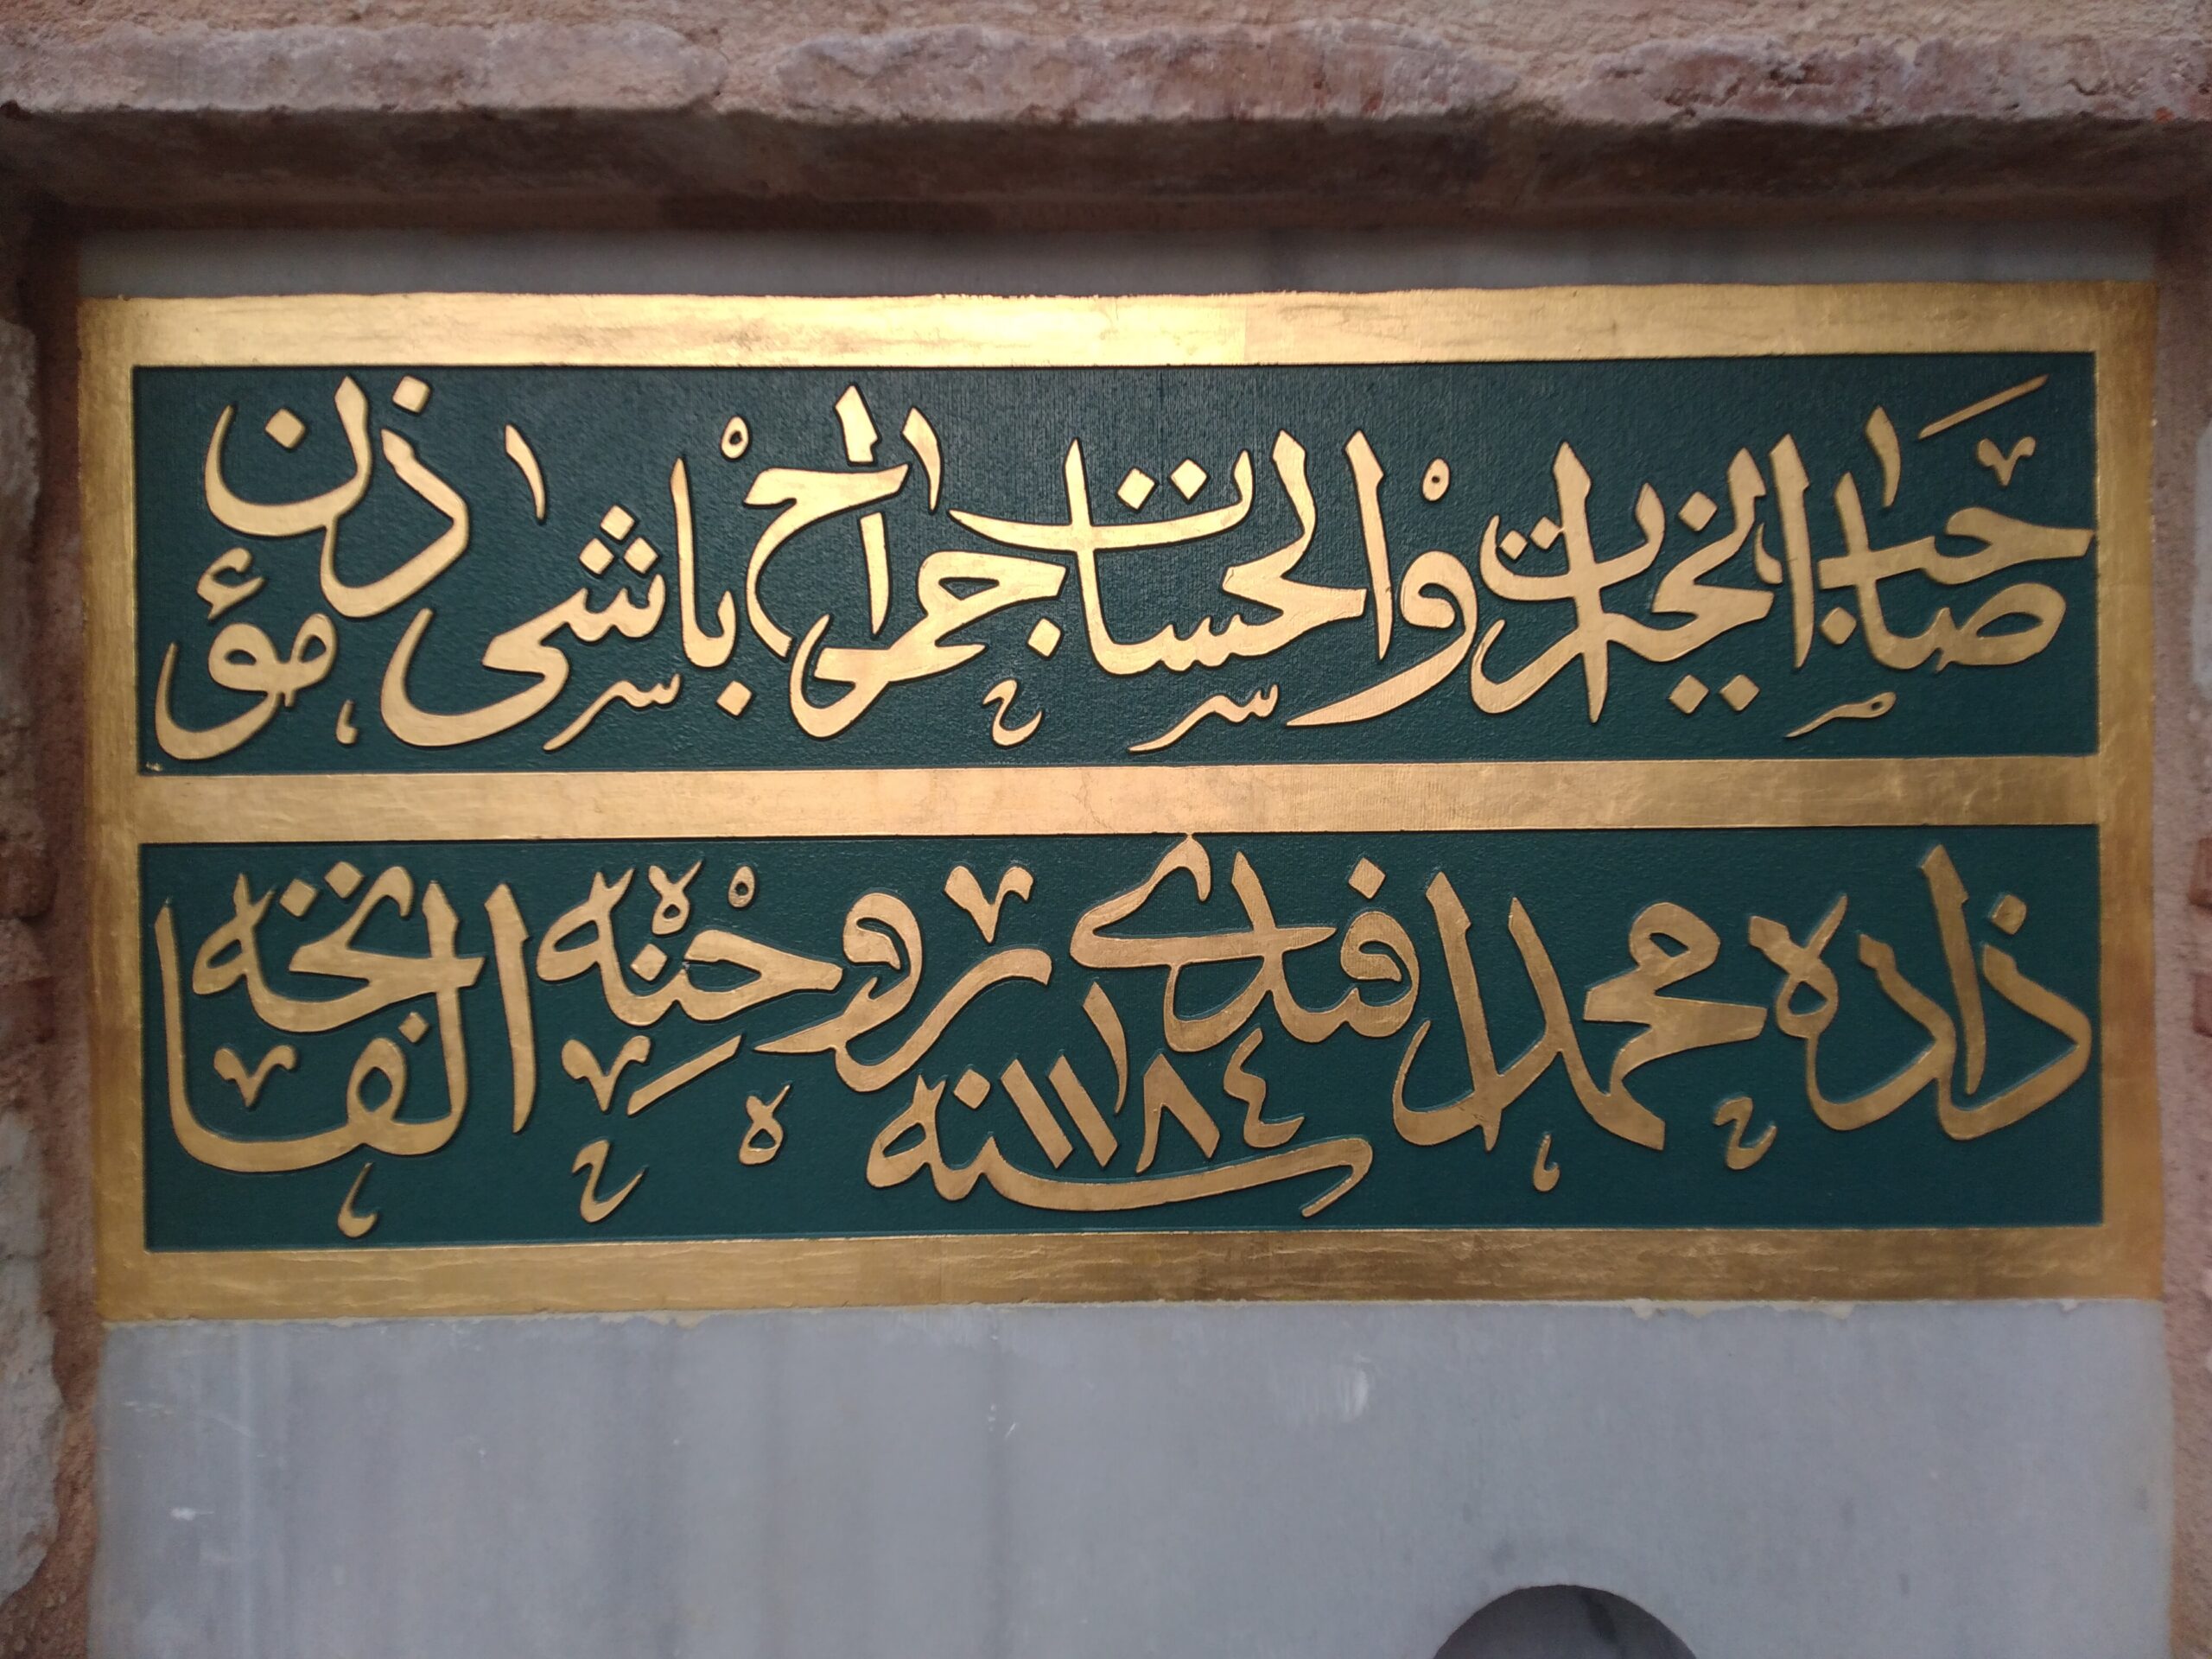 صاحب الخيرات والحسنات جراح باشى مؤذن
زاده محمد افندى روحنه الفاتحه
سنه ١١٨٤